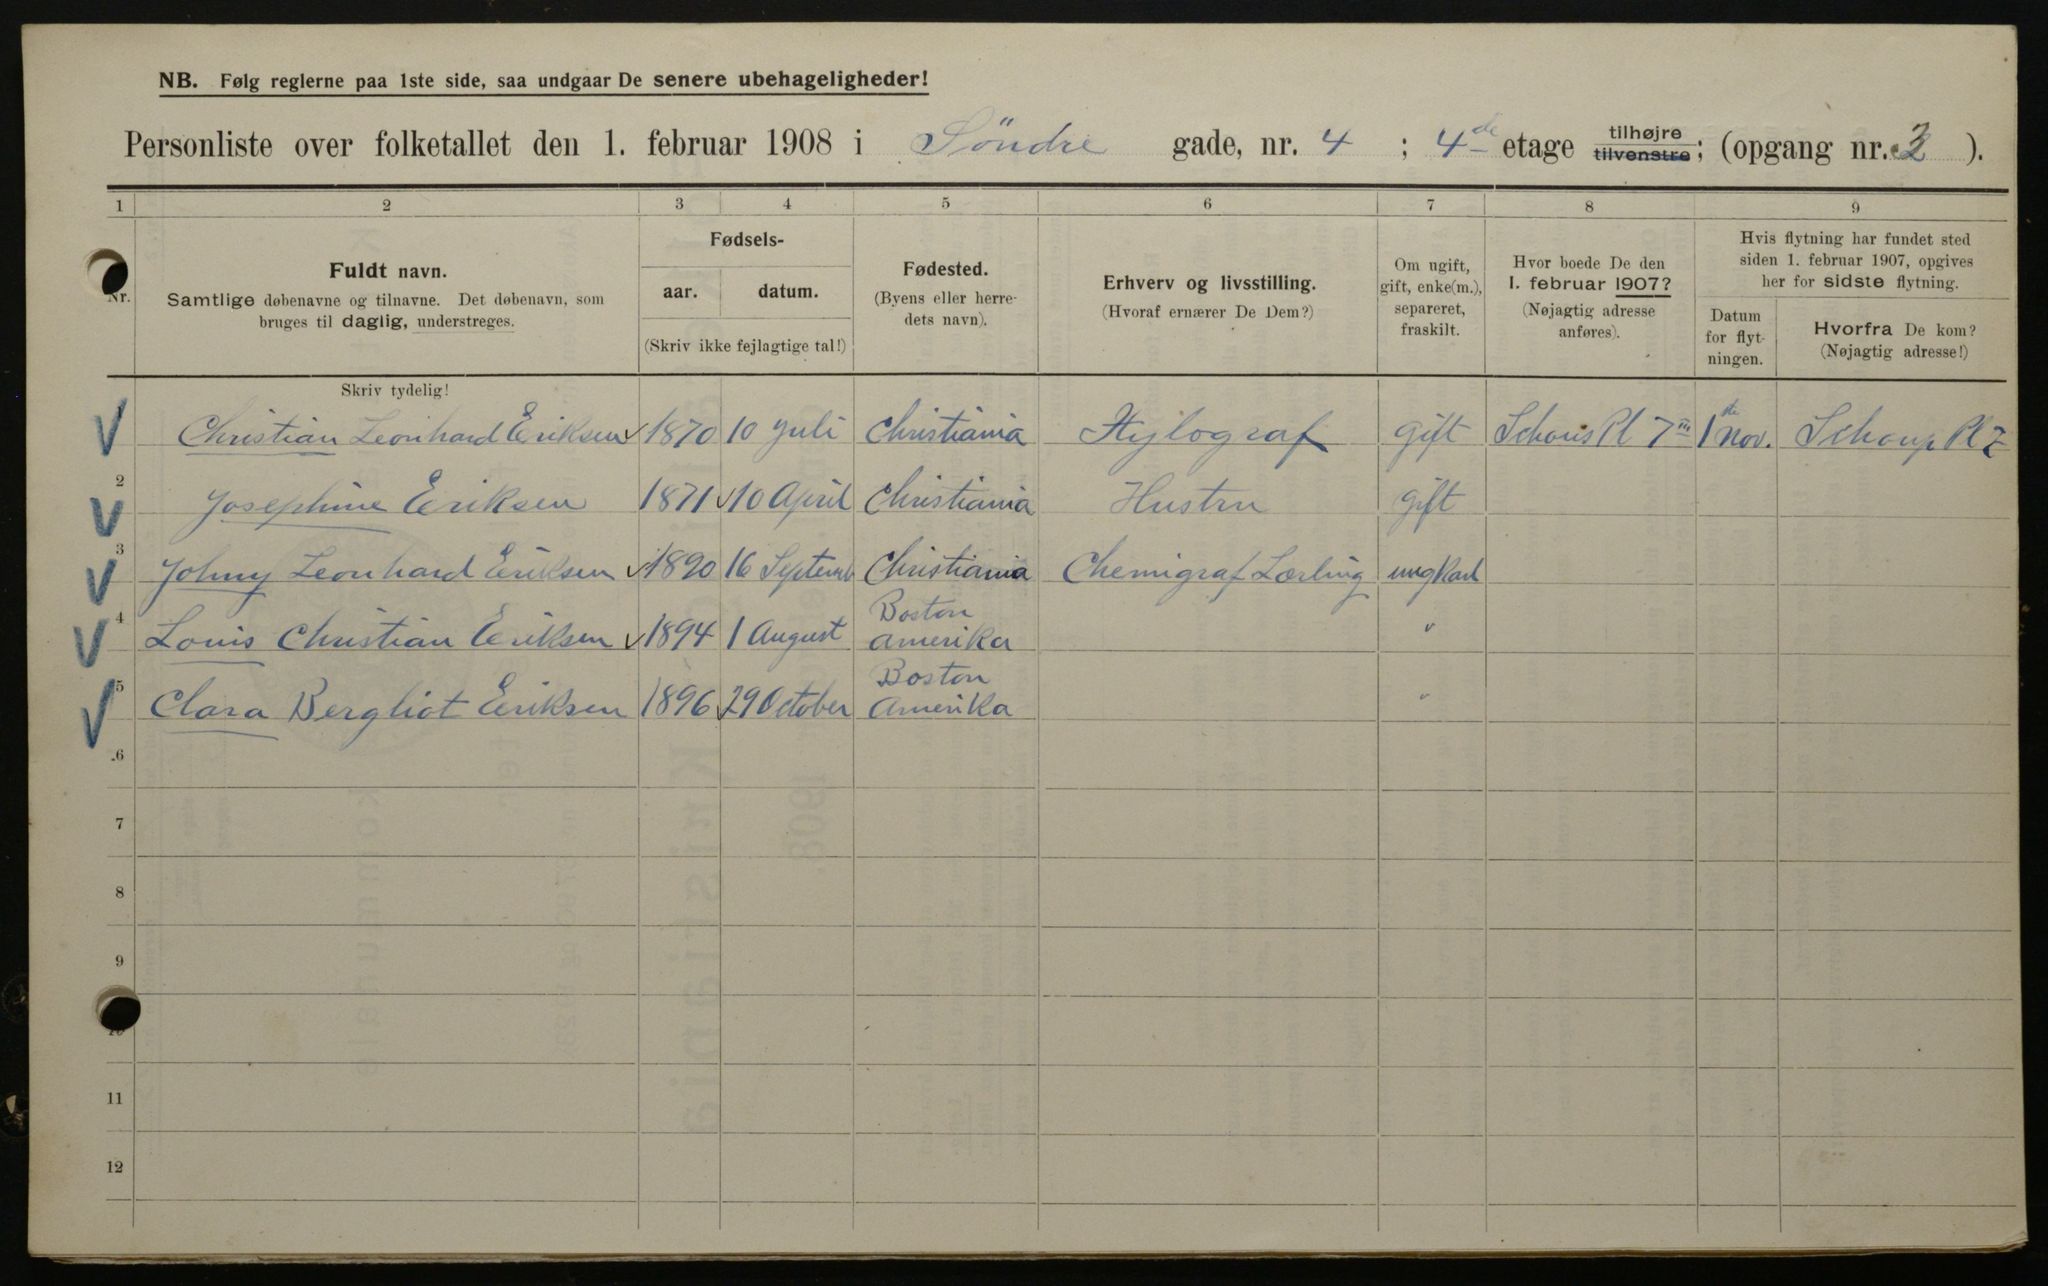 NB. Følg reglerne paa 1ste side, saa undgaar De senere ubehageligheder!
Personliste over folketallet den 1. februar 1908 i Söndre gade, nr. 4 ; 4de etage tilhøjre tilvenstre; (opgang nr. 2 ).
1 2 3 4 5 6 7 8 9
Nr.
Fuldt navn.
Samtlige døbenavne og tilnavne. Det døbenavn, som
bruges til daglig, understreges.
Skriv tydelig!
Fødsels-
aar. datum.
(Skriv ikke fejlagtige tal!)
Fødested.
(Byens eller herre-
dets navn).
Erhverv og livsstilling.
(Hvoraf ernærer De Dem?)
Om ugift,
gift, enke(m.),
separeret,
fraskilt.
Hvor boede De den
1. februar 1907?
(Nøjagtig adresse
anføres).
Hvis flytning har fundet sted
siden 1. februar 1907, opgives
her for sidste flytning.
Datum
for flyt-
ningen.
Hvorfra De kom?
(Nøjagtig adresse!)
Christian Leonhard Eriksen 1870 10 Juli Christiania Xylograf gift Schous Pl 7 1 de Nov. Schous Pl 7
2 Josephine Eriksen 1871 10 April Christiania Hustru gift
3 Johny Leonhard Eriksen 1890 16 Septemb Christiania Chemigraf Lærling ungkarl
4 Louis Christian Eriksen 1894 1 August Boston Amerika "
5 Clara Bergliot Eriksen 1896 29 October Boston Amerika "
6
7
8
9
10
11
12